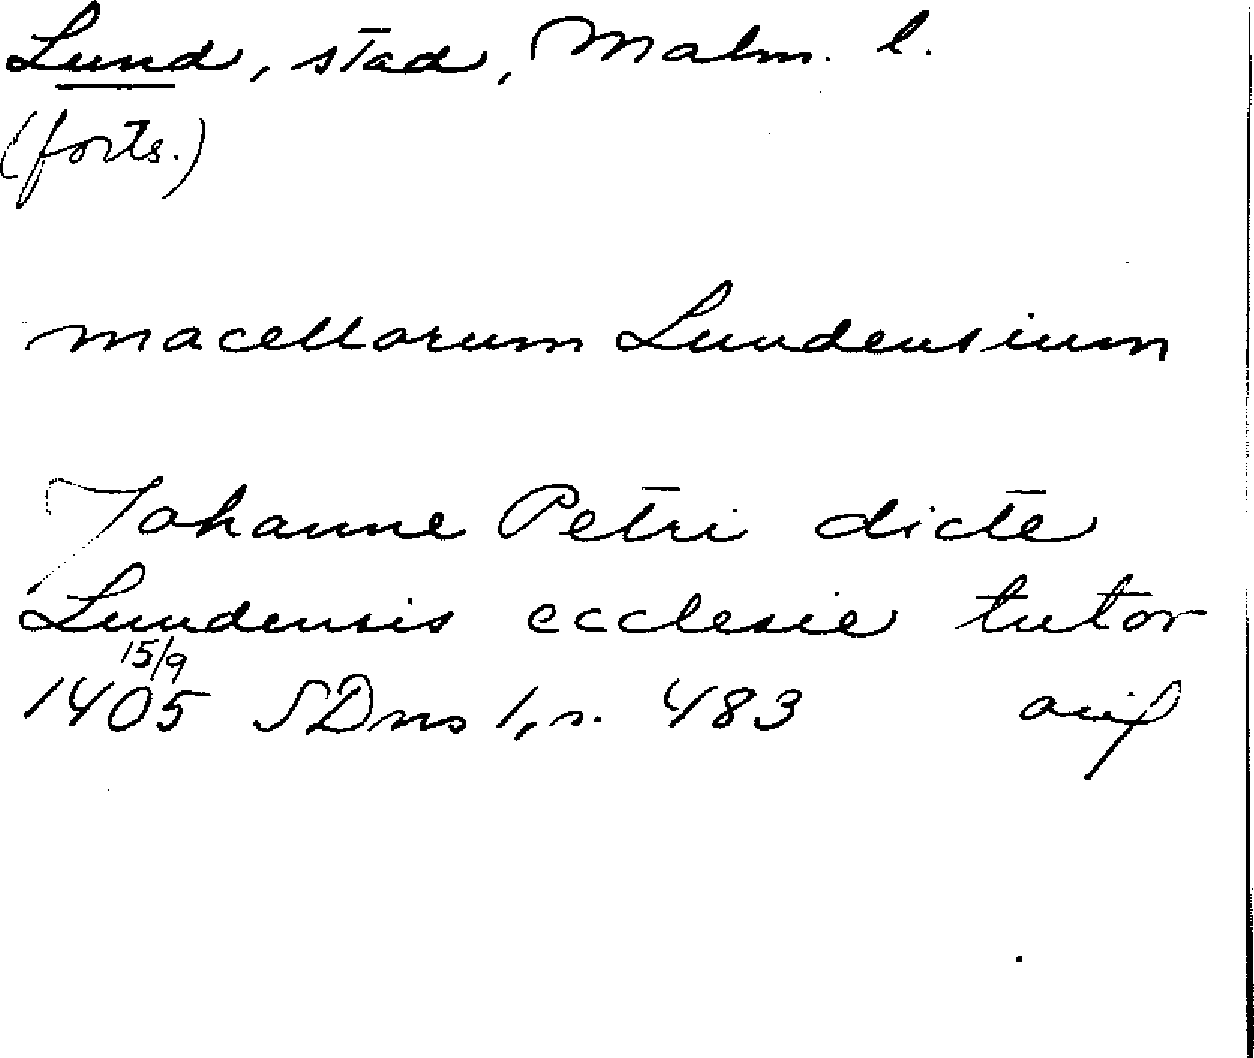 Lund, stad, Malm. l.
(forts.)
macellorum Lundensium
Johanne Petri dicte
Lundensis ecclesie tutor
15/9
1405 SDns 1, s. 483